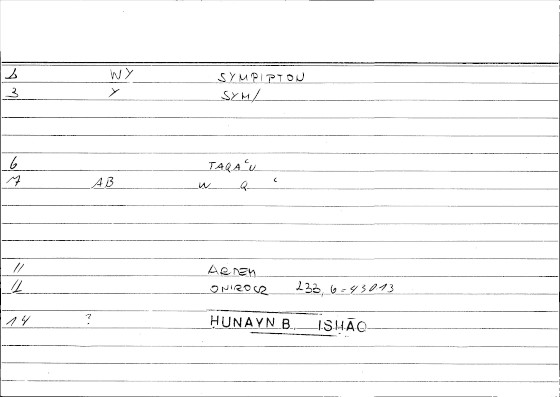 2 WY SYMPIPTON
3 Y SYM/
6 TAQAʿU
7 AB W Q ʿ
11 ARTEM
12 ONIROCR 233, 6 = 45013
14 ? HUNAYN B. ISHĀQ